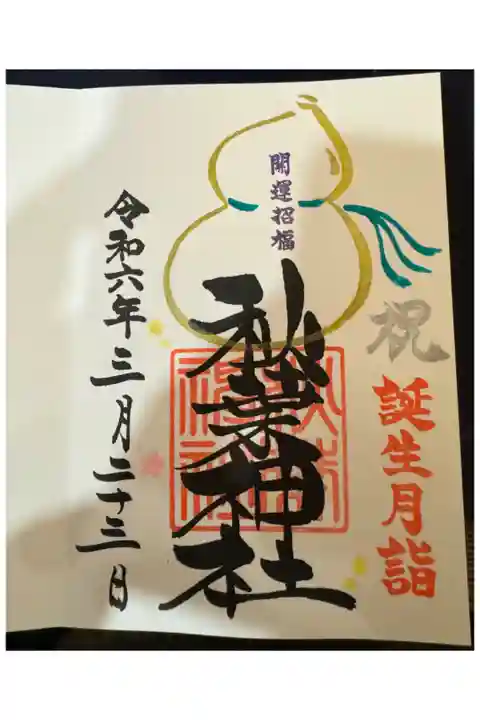 祝
誕生月詣
開運招福
秋葉神社
秋葉神社
令和六年三月二十三日